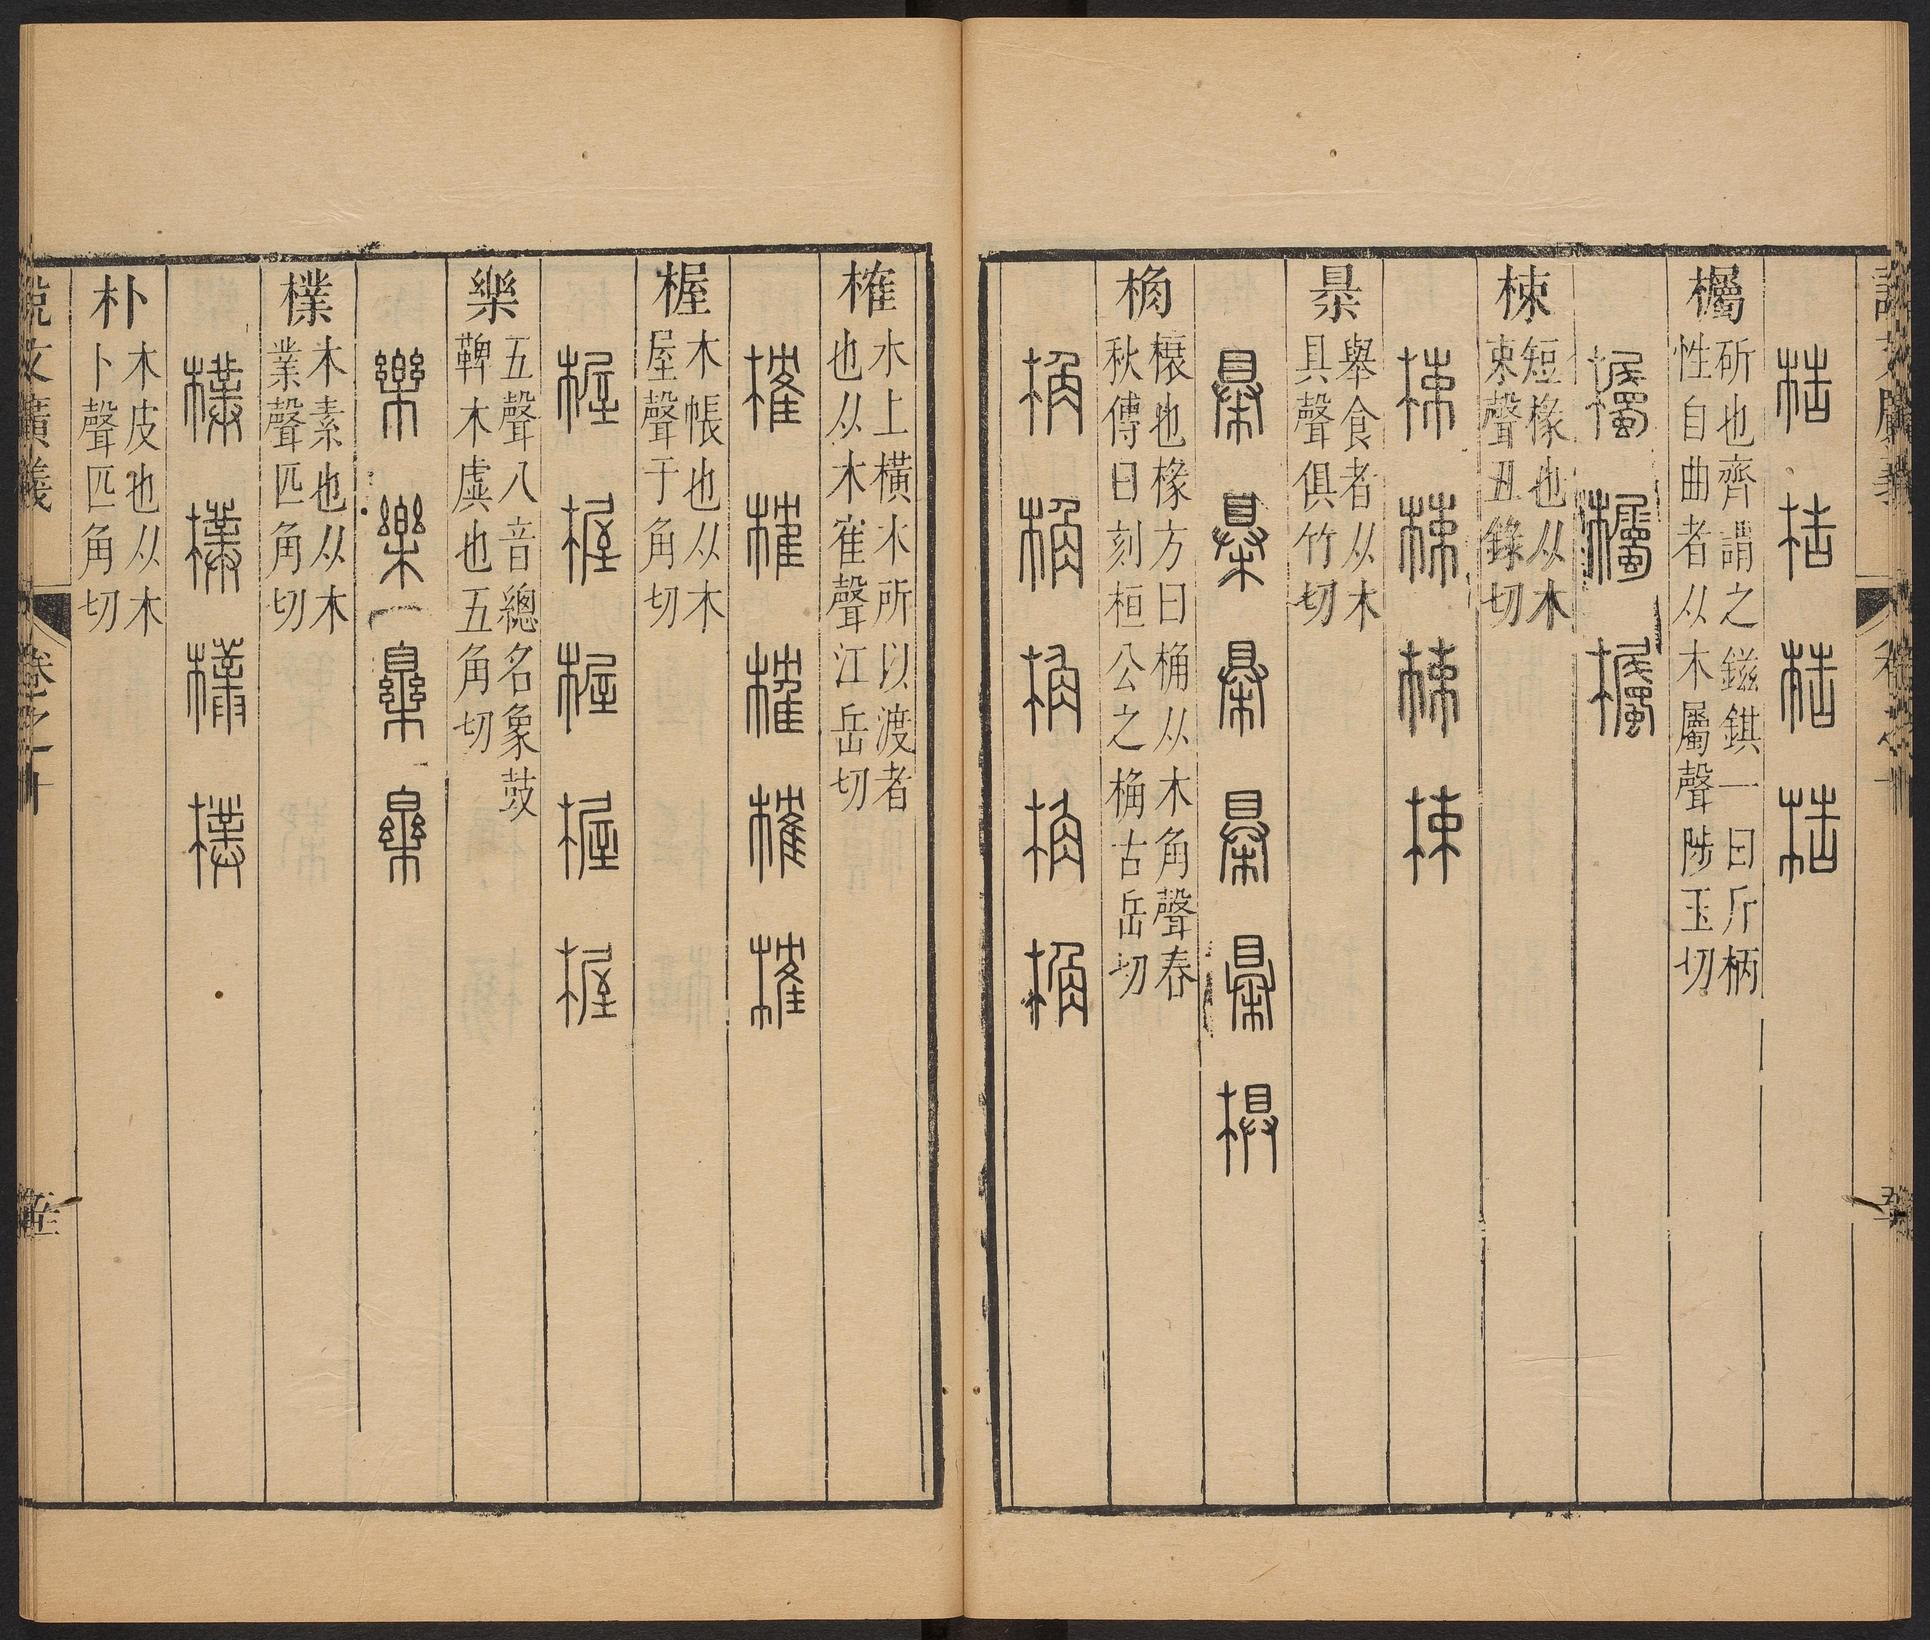 梏 梏 梏 梏
欘
斫也齊謂之鎡錤一曰斤柄
性自曲者从木屬聲陟玉切
欘 欘 欘
梀
短椽也从木
束聲丑錄切
梀 梀 梀 梀
暴
舉食者从木
具聲俱竹切
暴 暴 暴 暴 暴 梮
桷
榱也椽方曰桷从木角聲春
秋傳曰刻桓公之桷古岳切
桷 桷 桷 桷 桷
榷
水上橫木所以渡者
也从木隺聲江岳切
榷 榷 榷 榷 榷
楃
木帳也从木
屋聲于角切
楃 楃 楃 楃 楃
樂
五聲八音總名象鼓
鞞木虡也五角切
樂 樂 樂 樂
樸
木素也从木
菐聲匹角切
樸 樸 樸 樸
朴
木皮也从木
卜聲匹角切
說文廣義
卷之十